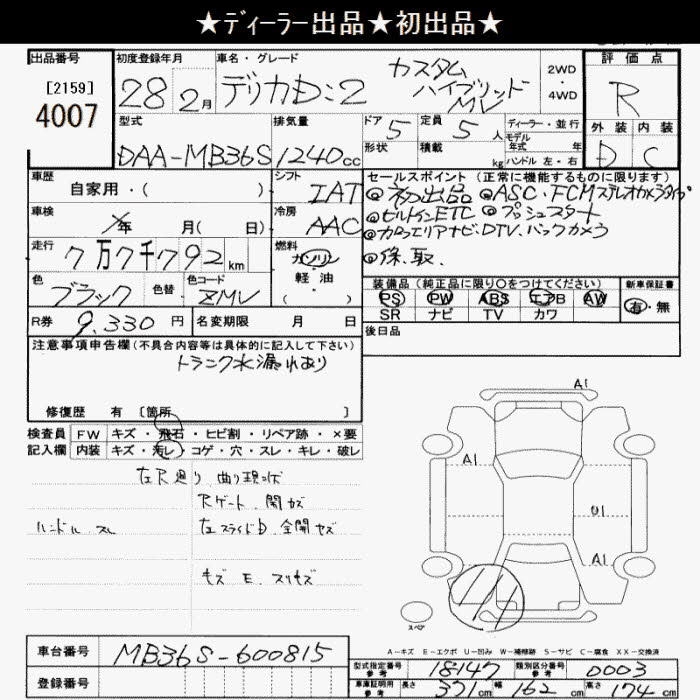 ★ディーラー出品★初出品★
出品番号
[2159]
4007
初度登録年月
28年2月
車名・グレード
デリカD:2
カスタム
ハイブリッド
MV
2WD
・
4WD
評価点
R
外装 内装
D C
型式
DAA-MB36S
排気量
1240cc
ドア 5
形状
定員 5人
積載 kg
ディーラー・並行
モデル
年式 年
ハンドル 左・右
車歴
自家用・( )
シフト
IAT
車検
年 月( 日)
冷房
AAC
走行
7万7千792km
燃料
ガソリン
軽油
( )
色
ブラック
色替
色コード
ZMV
R券 9,330円
名変期限 月 日
セールスポイント(正常に機能するものに限ります)
◎初出品 ◎ASC・FCMステレオカメラタイプ
◎ビルトインETC ◎プッシュスタート
◎カロエリアナビ・DTV.バックカメラ
◎保.取.
装備品(純正品に限り○をつけてください)
PS PW ABS エアB AW
SR ナビ TV カワ
新車保証書
有・無
後日品
注意事項申告欄(不具合内容等は具体的に記入して下さい)
トランク水漏れあり
修復歴 有〔箇所 〕
検査員 FW キズ・飛石・ヒビ割・リペア跡・×要
記入欄 内装 キズ・汚レ・コゲ・穴・スレ・キレ・破レ
左R廻り.曲り現状
Rゲート.開カズ
ハンドル.スレ
左スライドD.全開せズ
キズ E.スリキズ
A1
A1
U1
A1
スペア
A-キズ E-エクボ U-凹み W-補修跡 S-サビ C-腐食 XX-交換済
車台番号 MB36S-600815
登録番号
型式指定番号
参考
18147
類別区分番号
参考
0003
車庫証明用
参考
長さ 371cm 幅 162cm 高さ 174cm